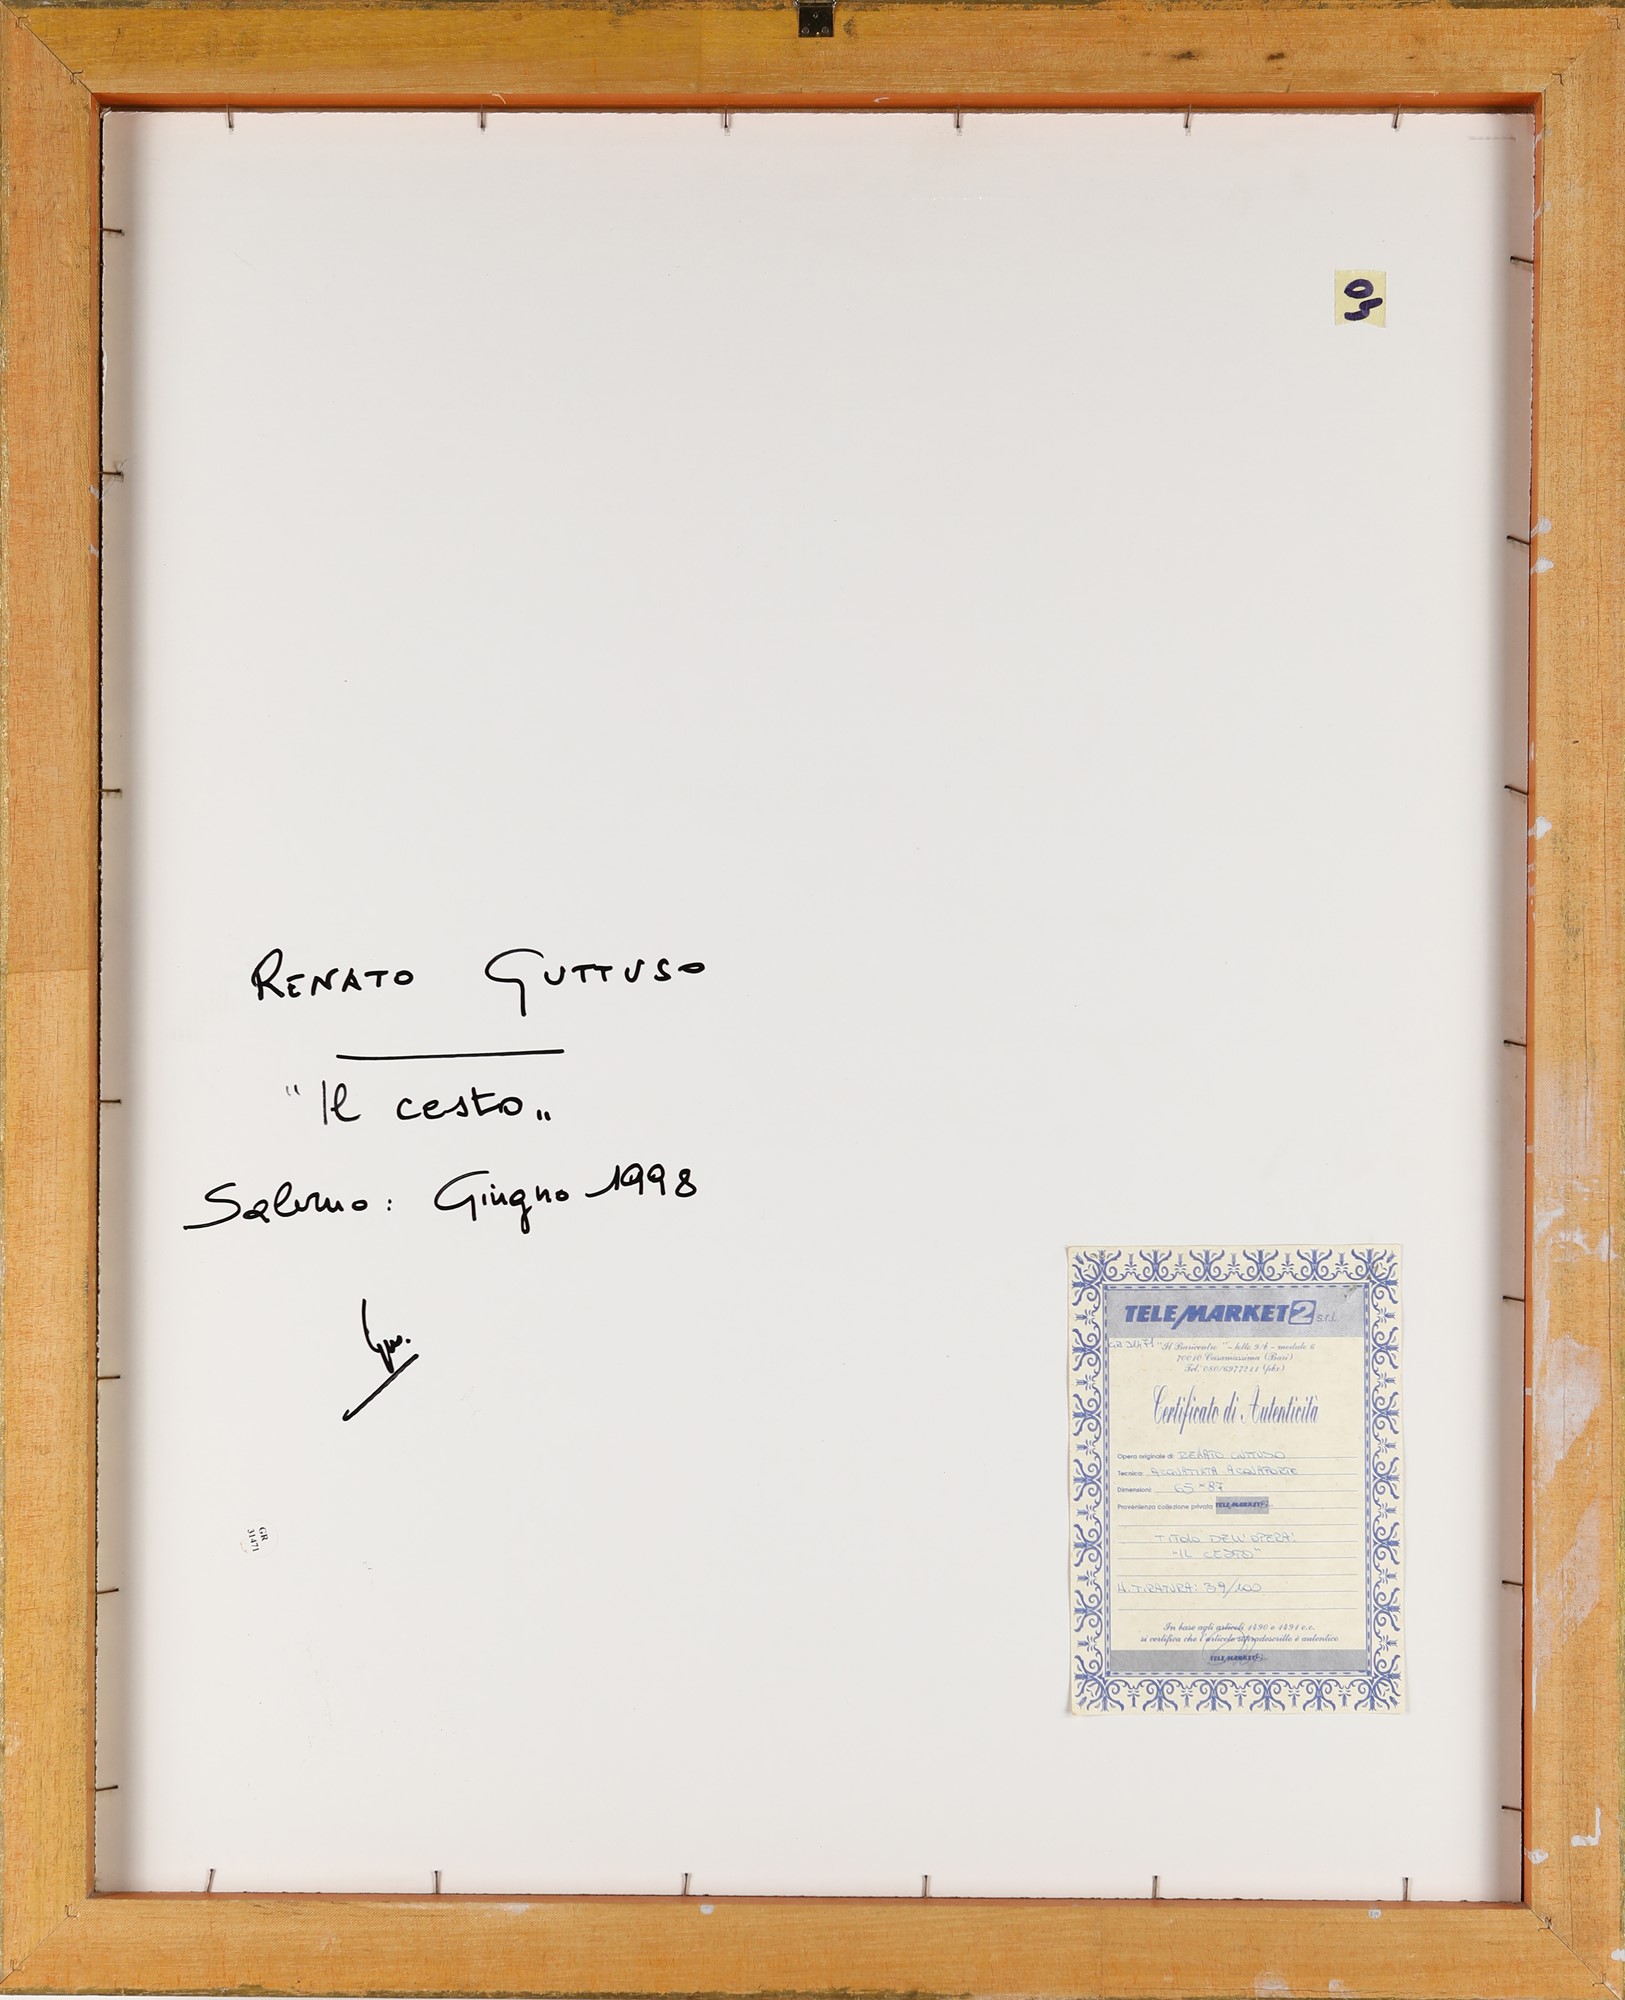 RENATO GUTTUSO
"Il cesto"
Salerno: Giugno 1998
GR
31471
TELEMARKET2 s.r.l.
GR 31471 "Il Baricentro" - lotto 9/b - modulo 6
70010 Casamassima (Bari)
Tel. 080/6977211 (pbx)
Certificato di Autenticità
Opera originale di: RENATO GUTTUSO
Tecnica: ACQUATINTA ACQUAFORTE
Dimensioni: 65 x 87
Provenienza collezione privata TELEMARKET2
TITOLO DELL'OPERA:
"IL CESTO"
N. TIRATURA: 39/100
In base agli articoli 1490 e 1491 c.c.
si certifica che l'articolo sopradescritto è autentico
TELEMARKET2